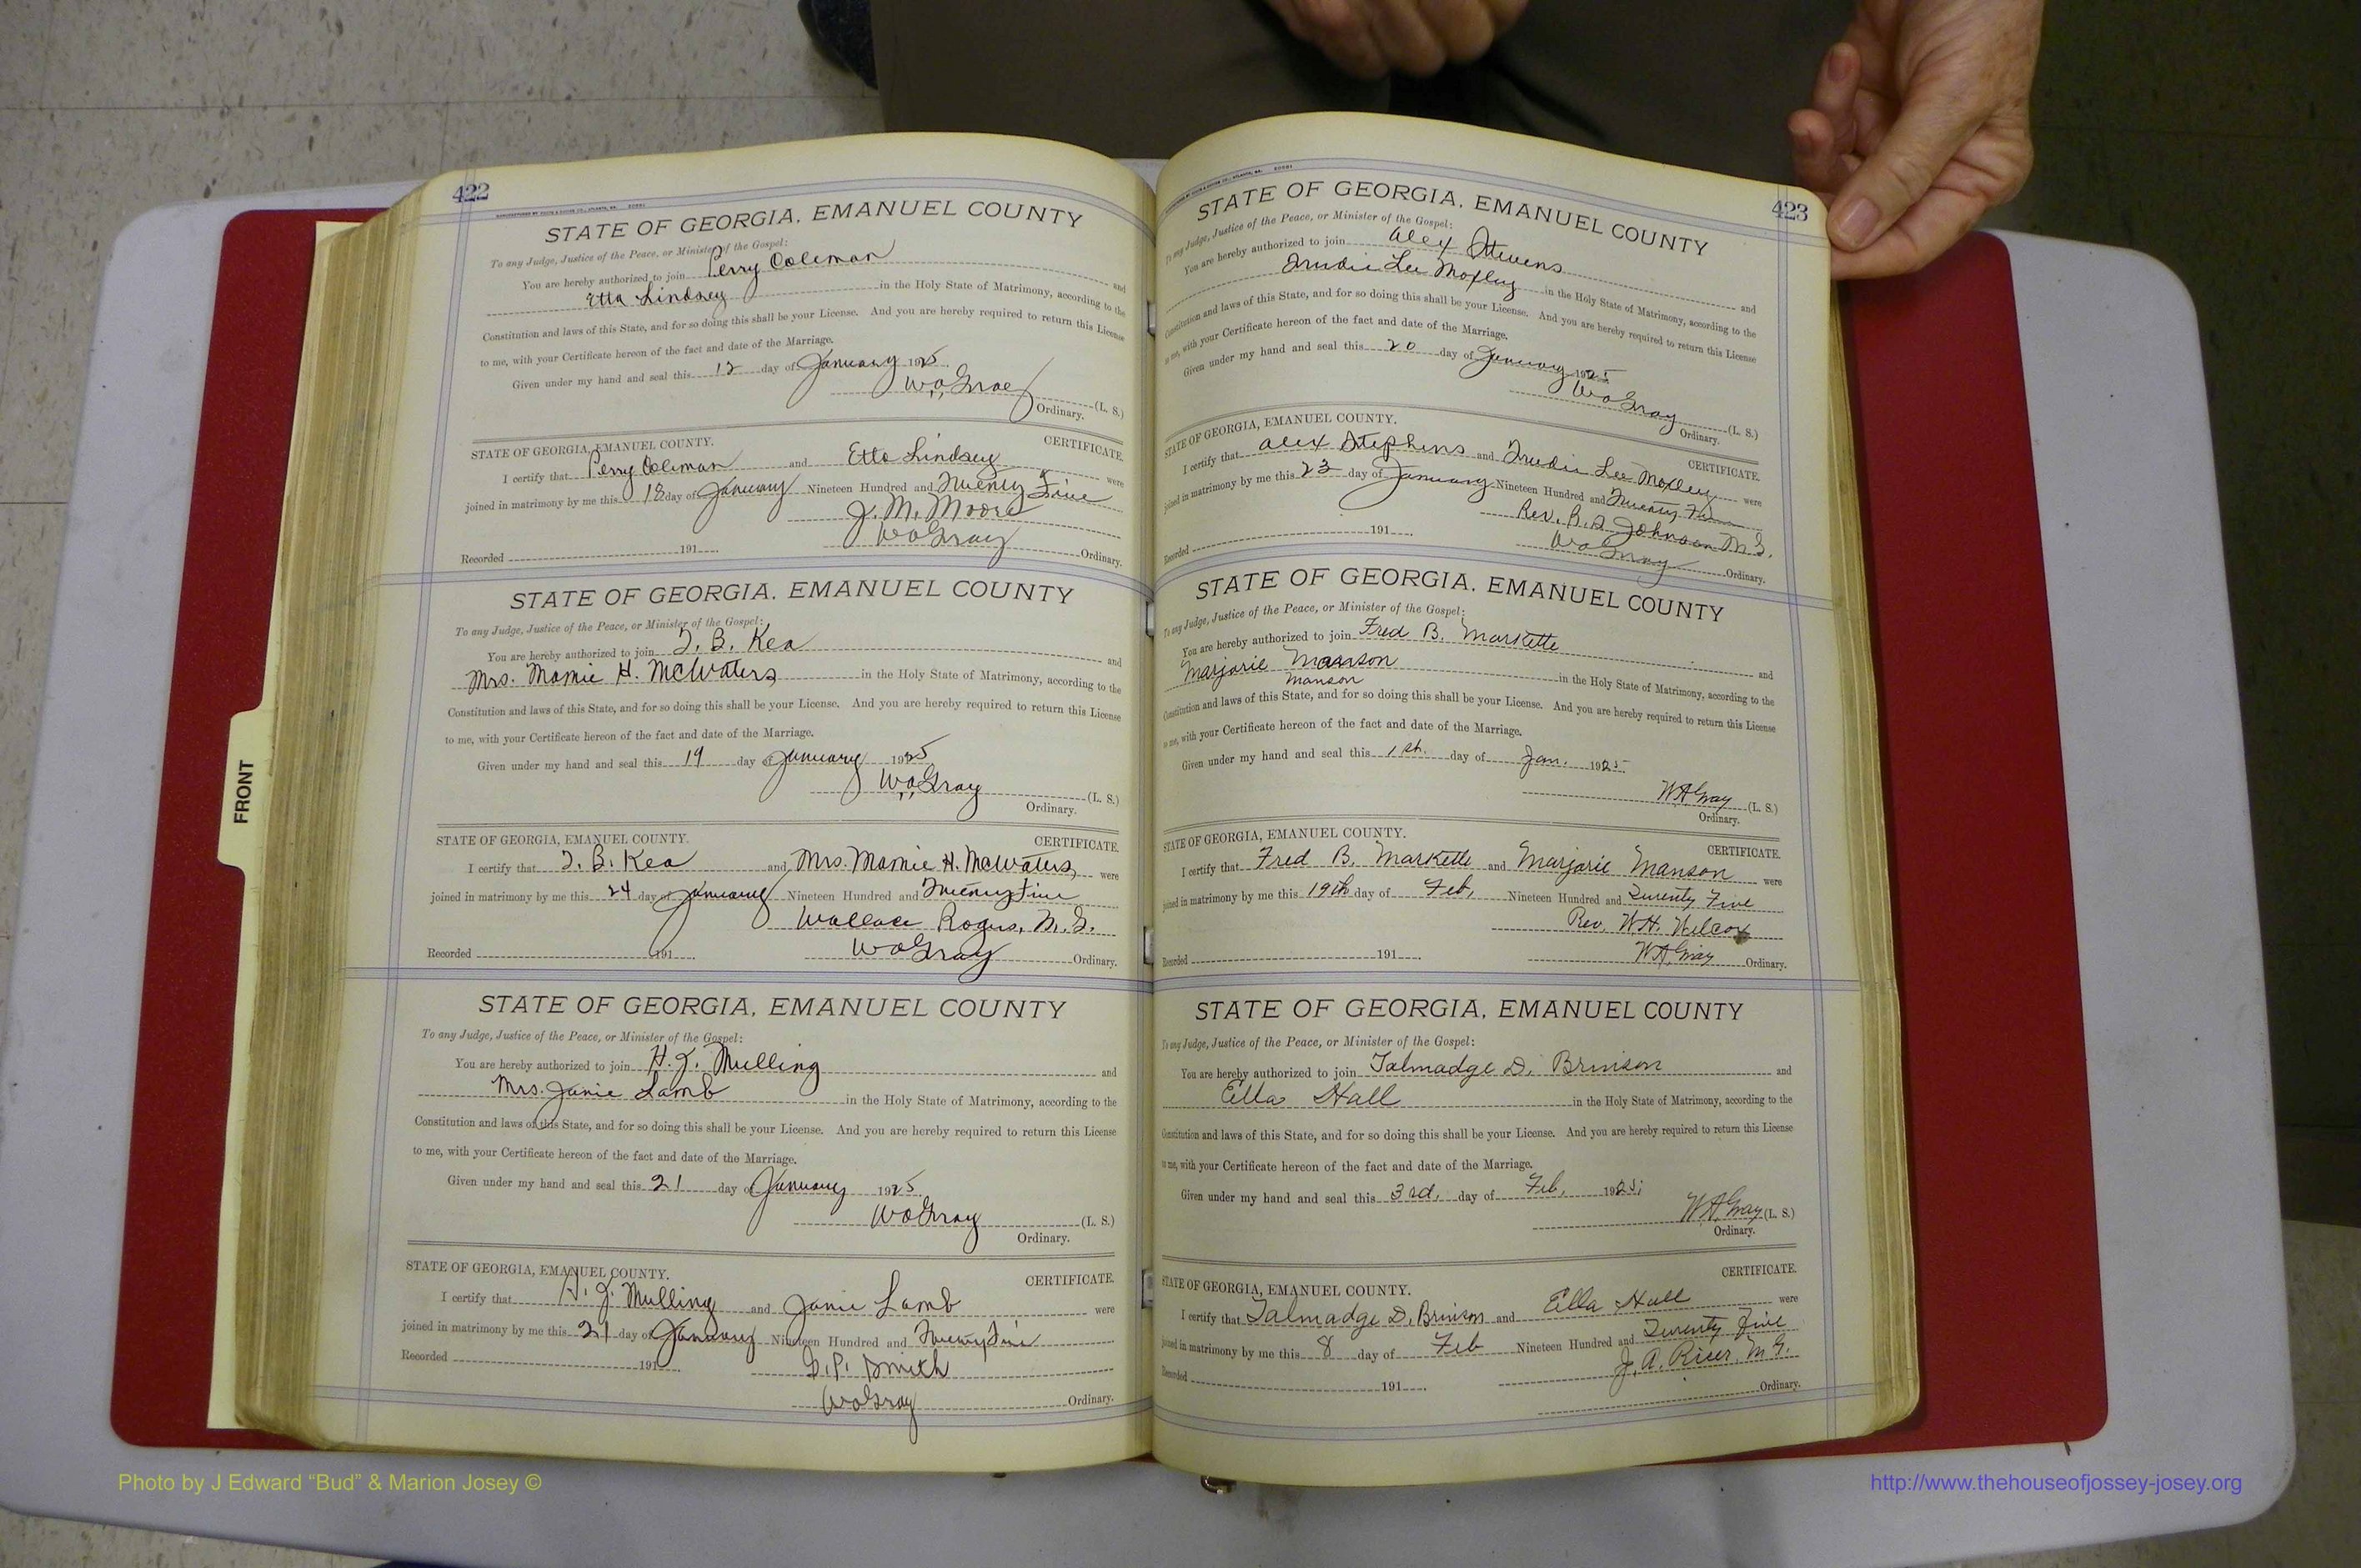 422
STATE OF GEORGIA, EMANUEL COUNTY
To any Judge, Justice of the Peace, or Minister of the Gospel:
You are hereby authorized to join Perry Coleman and
Etta Lindsey in the Holy State of Matrimony, according to the
Constitution and laws of this State, and for so doing this shall be your License. And you are hereby required to return this License
to me, with your Certificate hereon of the fact and date of the Marriage.
Given under my hand and seal this 12 day of January 1925
W A Gray (L. S.)
Ordinary.
STATE OF GEORGIA, EMANUEL COUNTY. CERTIFICATE.
I certify that Perry Coleman and Etta Lindsey were
joined in matrimony by me this 18 day of January Nineteen Hundred and Twenty Five
J. M. Moore
Recorded 191 W A Gray Ordinary.
STATE OF GEORGIA, EMANUEL COUNTY
To any Judge, Justice of the Peace, or Minister of the Gospel:
You are hereby authorized to join J. B. Kea and
Mrs. Mamie H. McWaters in the Holy State of Matrimony, according to the
Constitution and laws of this State, and for so doing this shall be your License. And you are hereby required to return this License
to me, with your Certificate hereon of the fact and date of the Marriage.
Given under my hand and seal this 19 day of January 1925
W A Gray (L. S.)
Ordinary.
STATE OF GEORGIA, EMANUEL COUNTY. CERTIFICATE.
I certify that J. B. Kea and Mrs. Mamie H. McWaters were
joined in matrimony by me this 24 day of January Nineteen Hundred and Twenty Five
Wallace Rogers, M. G.
Recorded 191 W A Gray Ordinary.
STATE OF GEORGIA, EMANUEL COUNTY
To any Judge, Justice of the Peace, or Minister of the Gospel:
You are hereby authorized to join H. J. Mulling and
Mrs. Janie Lamb in the Holy State of Matrimony, according to the
Constitution and laws of this State, and for so doing this shall be your License. And you are hereby required to return this License
to me, with your Certificate hereon of the fact and date of the Marriage.
Given under my hand and seal this 21 day of January 1925
W A Gray (L. S.)
Ordinary.
STATE OF GEORGIA, EMANUEL COUNTY. CERTIFICATE.
I certify that H. J. Mulling and Janie Lamb were
joined in matrimony by me this 21 day of January Nineteen Hundred and Twenty Five
Recorded 191 G. P. Smith
W A Gray Ordinary.
423
STATE OF GEORGIA, EMANUEL COUNTY
To any Judge, Justice of the Peace, or Minister of the Gospel:
You are hereby authorized to join Alex Stevens and
Trudie Lee Moxley in the Holy State of Matrimony, according to the
Constitution and laws of this State, and for so doing this shall be your License. And you are hereby required to return this License
to me, with your Certificate hereon of the fact and date of the Marriage.
Given under my hand and seal this 20 day of January 1925
W A Gray (L. S.)
Ordinary.
STATE OF GEORGIA, EMANUEL COUNTY. CERTIFICATE.
I certify that Alex Stephens and Trudie Lee Moxley were
joined in matrimony by me this 23 day of January Nineteen Hundred and Twenty Five
Rev. Johnson M. G.
Recorded 191 W A Gray Ordinary.
STATE OF GEORGIA, EMANUEL COUNTY
To any Judge, Justice of the Peace, or Minister of the Gospel:
You are hereby authorized to join Fred B. Markette and
Marjorie Manson in the Holy State of Matrimony, according to the
Manson
Constitution and laws of this State, and for so doing this shall be your License. And you are hereby required to return this License
to me, with your Certificate hereon of the fact and date of the Marriage.
Given under my hand and seal this 1st. day of Jan. 1925
W A Gray (L. S.)
Ordinary.
STATE OF GEORGIA, EMANUEL COUNTY. CERTIFICATE.
I certify that Fred B. Markette and Marjorie Manson were
joined in matrimony by me this 19th day of Feb, Nineteen Hundred and Twenty Five
Rev. W. H. Wilcox
Recorded 191 W A Gray Ordinary.
STATE OF GEORGIA, EMANUEL COUNTY
To any Judge, Justice of the Peace, or Minister of the Gospel:
You are hereby authorized to join Talmadge D. Brinson and
Ella Hall in the Holy State of Matrimony, according to the
Constitution and laws of this State, and for so doing this shall be your License. And you are hereby required to return this License
to me, with your Certificate hereon of the fact and date of the Marriage.
Given under my hand and seal this 3rd. day of Feb, 1925
W A Gray (L. S.)
Ordinary.
STATE OF GEORGIA, EMANUEL COUNTY. CERTIFICATE.
I certify that Talmadge D. Brinson and Ella Hall were
joined in matrimony by me this 8 day of Feb Nineteen Hundred and Twenty Five
J. A. M. G.
Recorded 191 Ordinary.
FRONT
Photo by J Edward “Bud” & Marion Josey ©
http://www.thehouseofjossey-josey.org